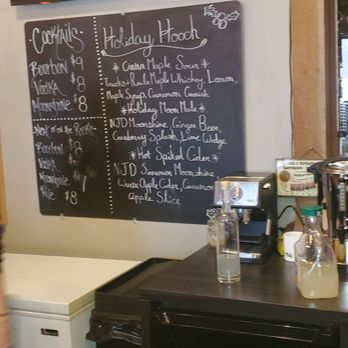 Cocktails:
Bourbon $9
Vodka $8
Moonshine $8
Neat or on the Rocks:
Bourbon $8
Vodka
Moonshine 7
Rye $8
Holiday Hooch
* Cinna Maple Sour *
Tracks + Rails Maple Whiskey, Lemon,
Maple Syrup, Cinnamon Garnish
* Holiday Moon Mule *
NJD Moonshine, Ginger Beer,
Cranberry Splash, Lime Wedge
* Hot Spiked Cider *
NJD Sinnamon Moonshine,
Warm Apple Cider, Cinnamon
Apple Slice